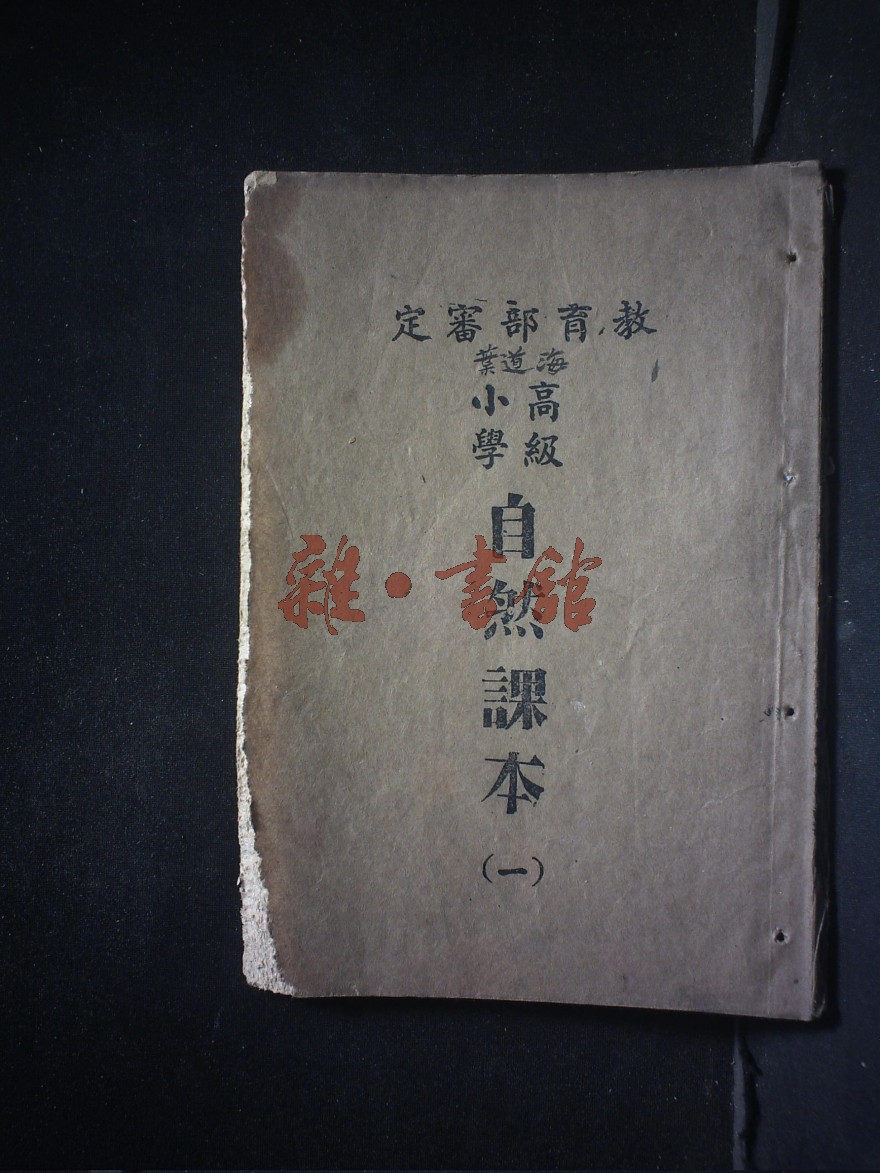 教育部審定
海道葉
高級
小學
自然課本
(一)
雜·書館